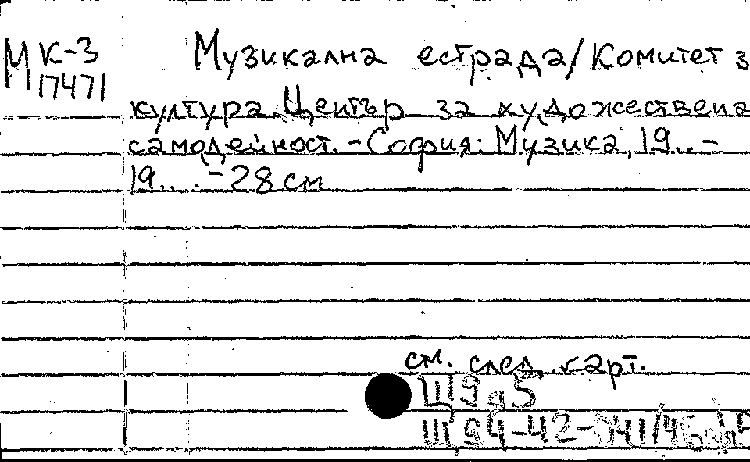 М К-3 Музикална естрада/Комитет з
17471
култура. Център за художествена
самодейност. - София: Музика, 19.. -
19... - 28 см
см. след. карт.
Щ9 я5
Щ94-42-